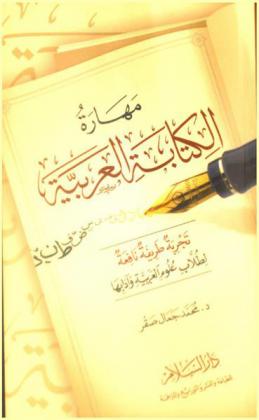 مهارة
الكتابة العربية
تجربة طريفة نافعة
لطلاب علوم العربية وآدابها
د. محمد جمال صقر
دار السلام
للطباعة والنشر والتوزيع والترجمة